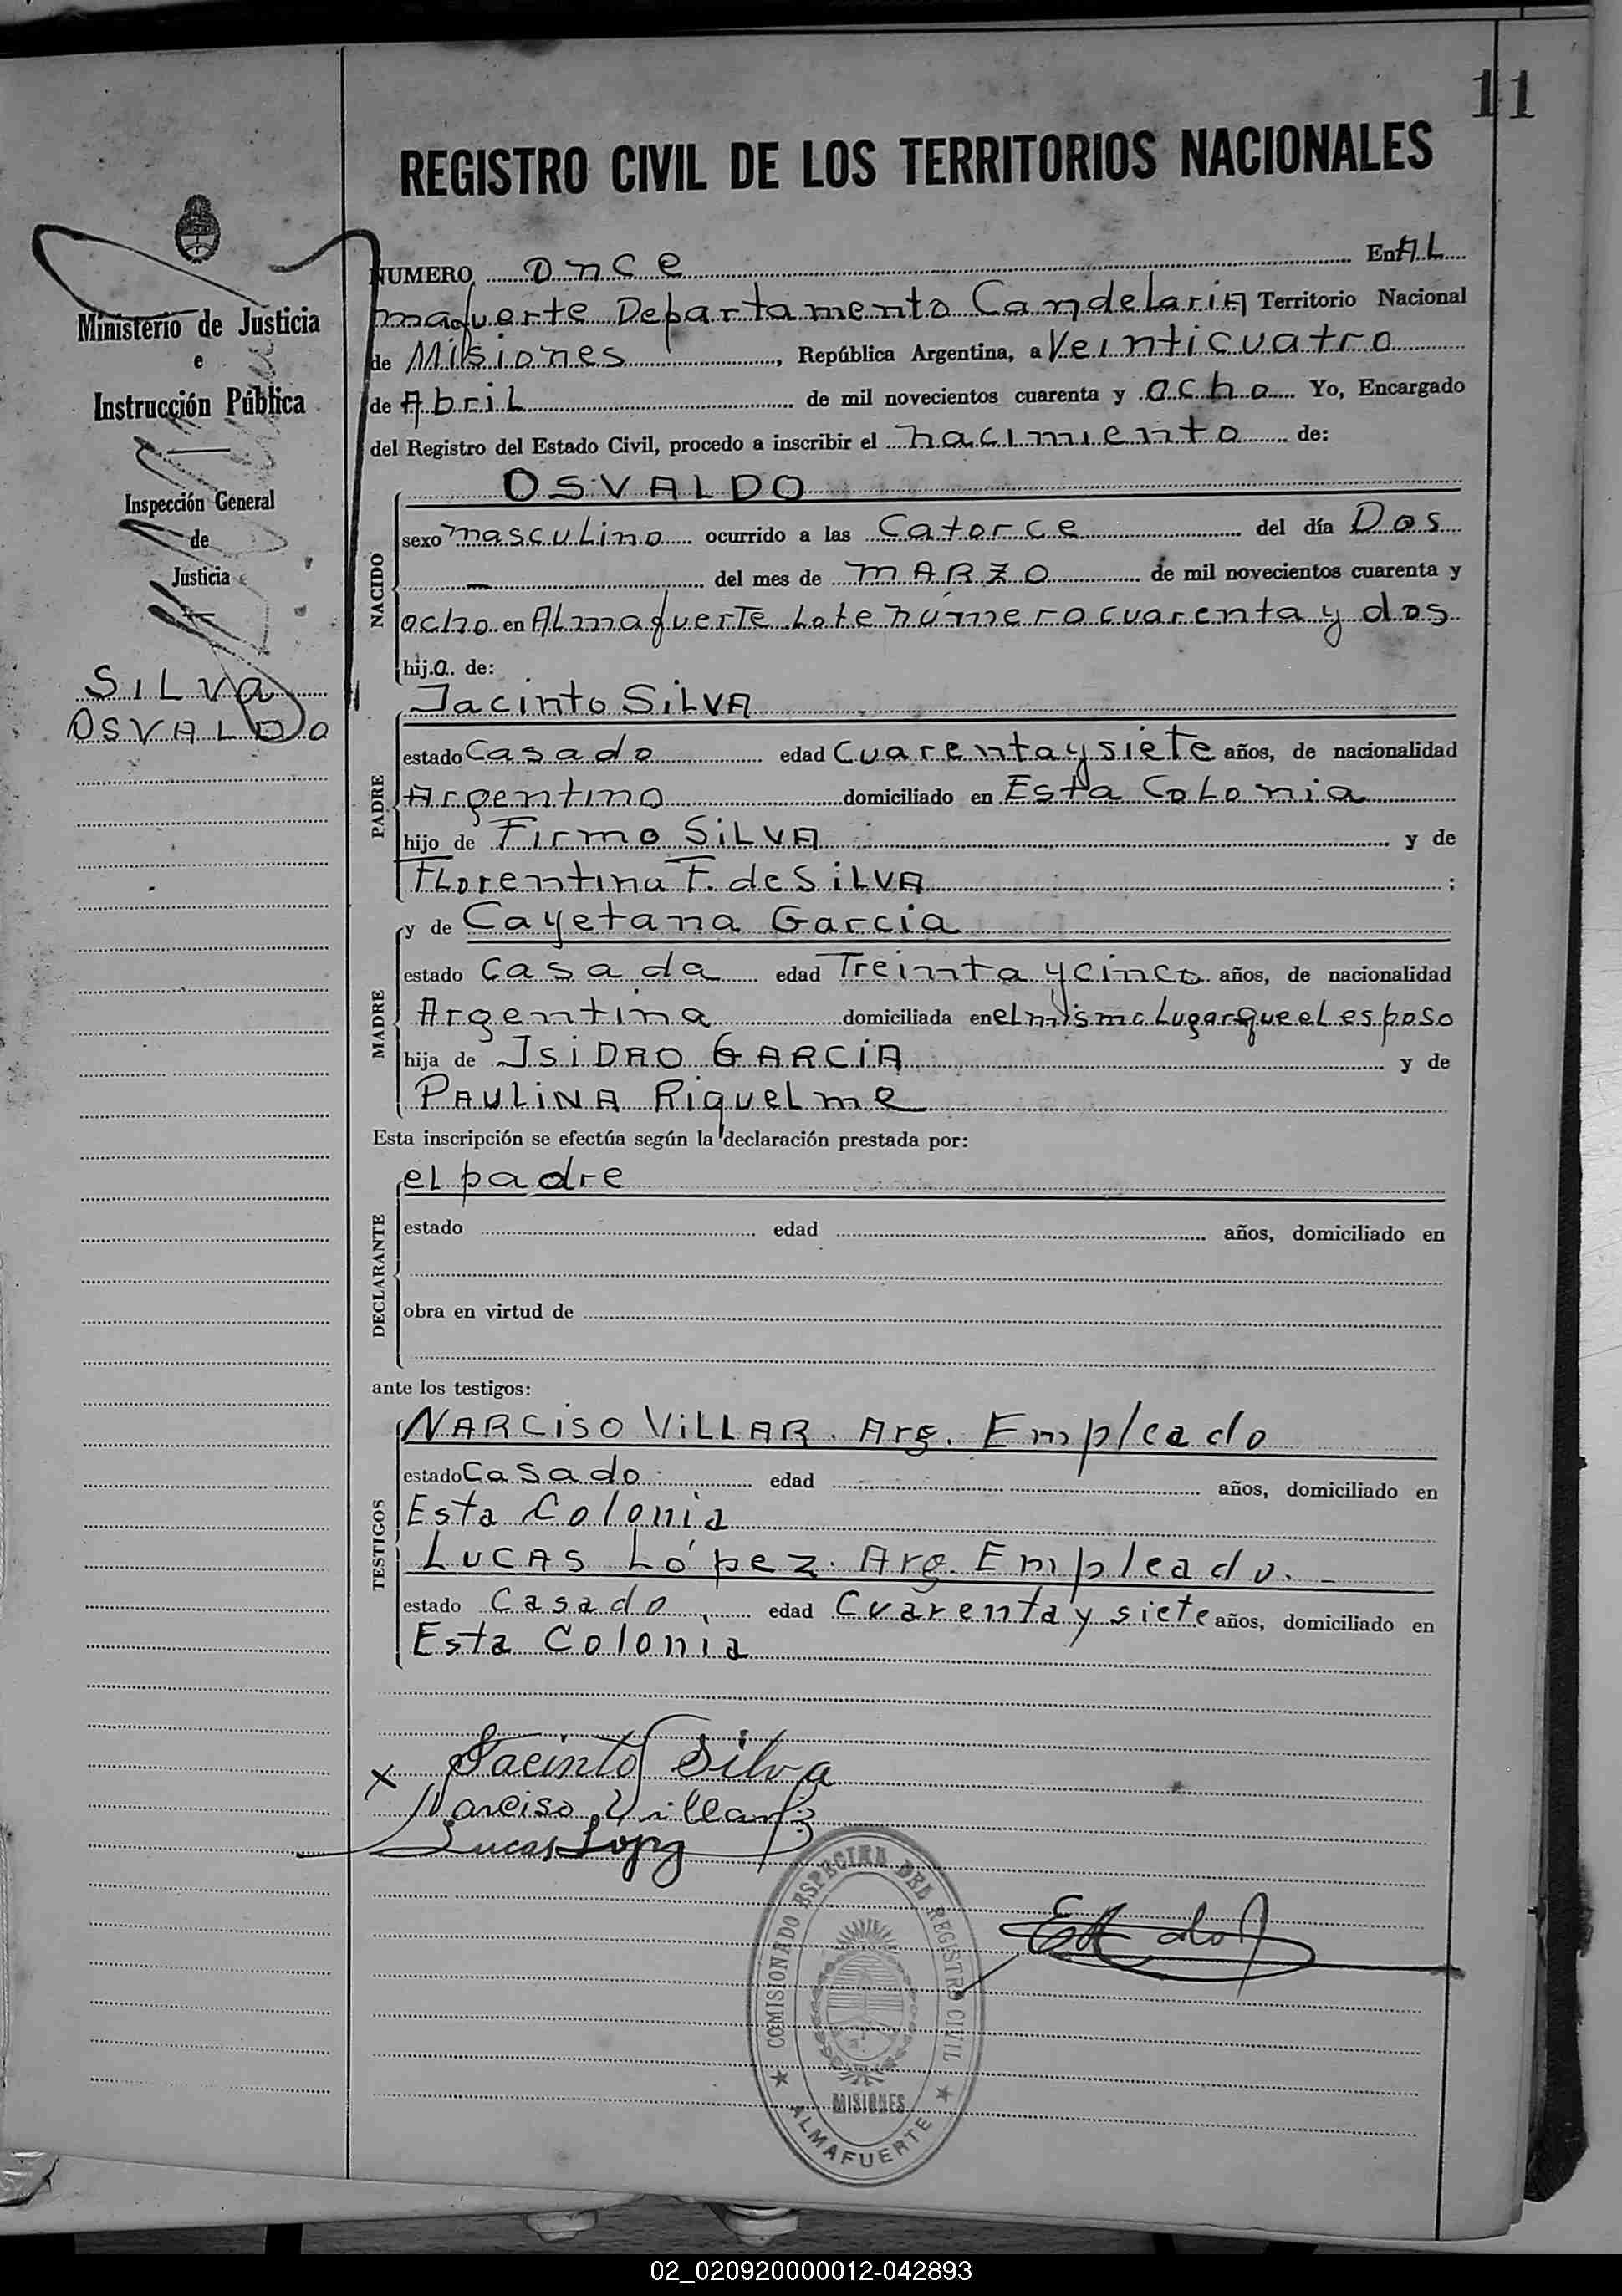 11
REGISTRO CIVIL DE LOS TERRITORIOS NACIONALES
NUMERO Once En AL
mafuerte Departamento Candelaria Territorio Nacional
de Misiones, República Argentina, a Veinticuatro
de Abril de mil novecientos cuarenta y ocho Yo, Encargado
del Registro del Estado Civil, procedo a inscribir el nacimiento de:
Ministerio de Justicia
e
Instrucción Pública
Inspección General
de
Justicia
SILVA
OSVALDO
NACIDO
OSVALDO
sexo masculino ocurrido a las Catorce del día Dos
— del mes de MARZO de mil novecientos cuarenta y
ocho en Almafuerte Lote número cuarenta y dos
hijo de:
PADRE
Jacinto SILVA
estado Casado edad Cuarenta y siete años, de nacionalidad
Argentino domiciliado en Esta Colonia
hijo de Firmo SILVA y de
Florentina F. de SILVA ;
MADRE
y de Cayetana Garcia
estado Casada edad Treinta y cinco años, de nacionalidad
Argentina domiciliada en el mismo Lugar que el esposo
hija de ISIDRO GARCÍA y de
PAULINA Riquelme
Esta inscripción se efectúa según la declaración prestada por:
DECLARANTE
el padre
estado edad años, domiciliado en
obra en virtud de
ante los testigos:
TESTIGOS
NARCISO VILLAR. Arg. Empleado
estado Casado edad años, domiciliado en
Esta Colonia
LUCAS López. Arg. Empleado. -
estado Casado, edad Cuarenta y siete años, domiciliado en
Esta Colonia
x Jacinto Silva
Narciso Villar
Lucas López
COMISIONADO ESPECIAL DEL REGISTRO CIVIL
MISIONES
ALMAFUERTE
02_020920000012-042893